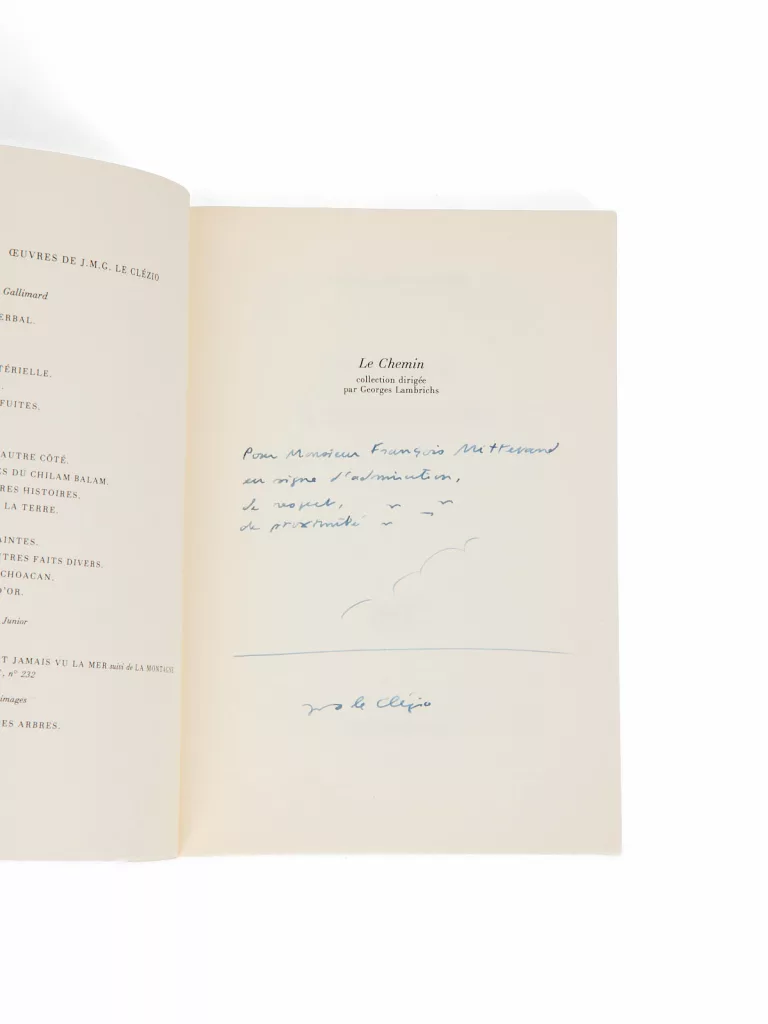 ŒUVRES DE J.M.G. LE CLÉZIO
Gallimard
ERBAL.
TÉRIELLE.
FUITES.
AUTRE CÔTÉ.
ES DU CHILAM BALAM.
RES HISTOIRES.
LA TERRE.
AINTES.
TRES FAITS DIVERS.
CHOACAN.
D'OR.
Junior
T JAMAIS VU LA MER suivi de LA MONTAGNE
, n° 232
images
ES ARBRES.
Le Chemin
collection dirigée
par Georges Lambrichs
Pour Monsieur François Mitterand
en signe d'admiration,
de respect,
de proximité
le Clézio